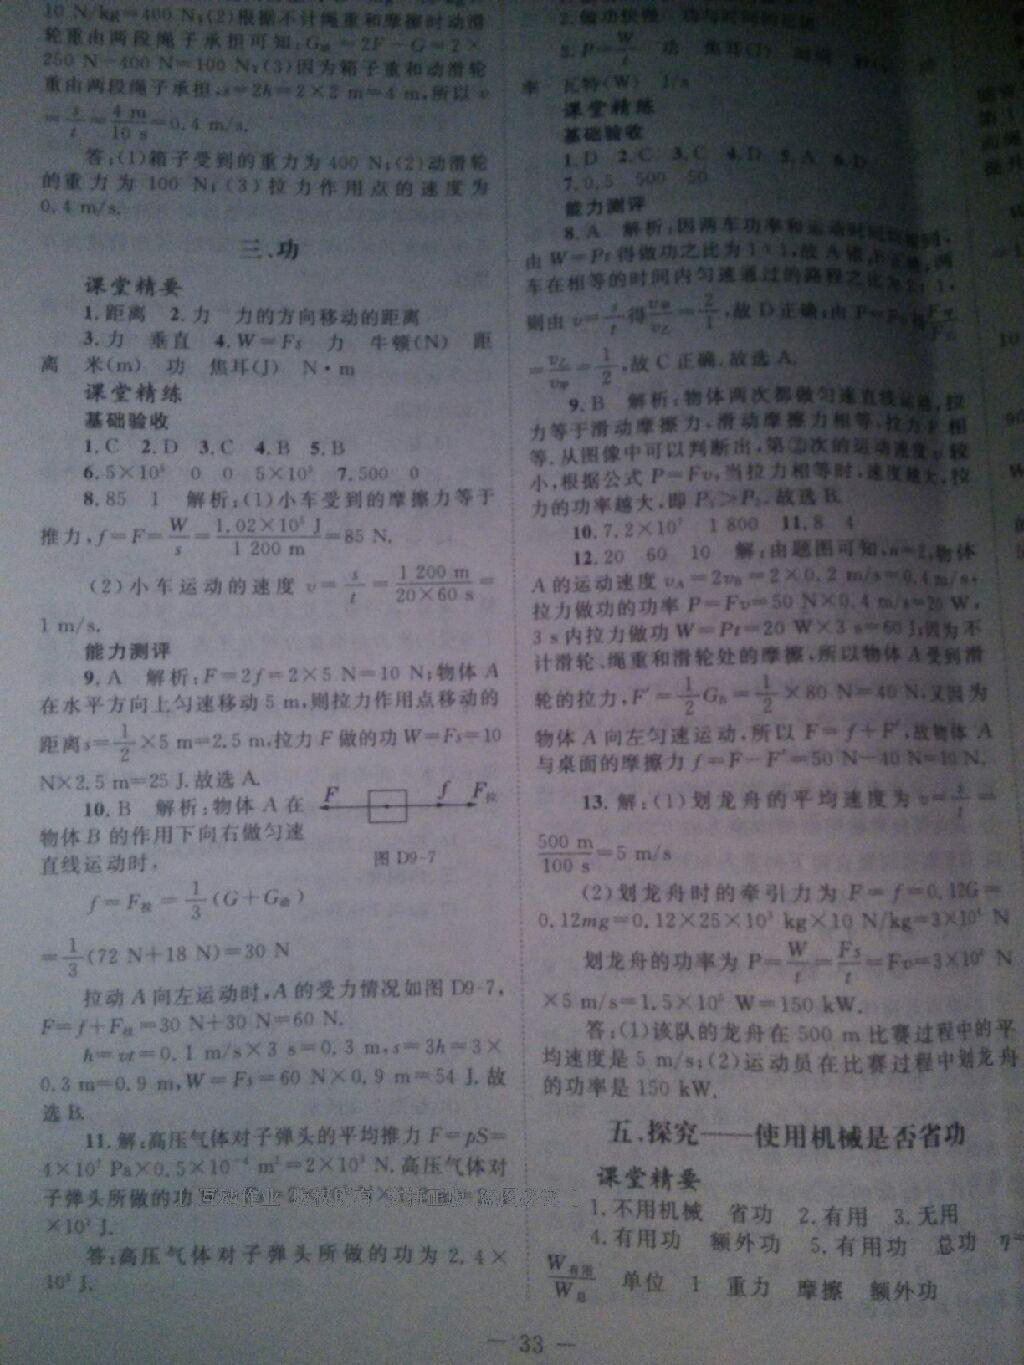 10 N/kg=400 N;(2)根据不计绳重和摩擦时动滑
轮重由两段绳子承担可知:G动=2F-G=2×
250 N-400 N=100 N;(3)因为箱子重和动滑轮
重由两段绳子承担,s=2h=2×2 m=4 m,所以 v
=s/t=4 m/10 s=0.4 m/s.
答:(1)箱子受到的重力为 400 N;(2)动滑轮
的重力为 100 N;(3)拉力作用点的速度为
0.4 m/s.
三、功
课堂精要
1.距离 2.力 力的方向移动的距离
3.力 垂直 4.W=Fs 力 牛顿(N) 距
离 米(m) 功 焦耳(J) N·m
课堂精练
基础验收
1.C 2.D 3.C 4.B 5.B
6.5×10⁵ 0 0 5×10⁵ 7.500 0
8.85 1 解析:(1)小车受到的摩擦力等于
推力,f=F=W/s=1.02×10⁵ J/1 200 m=85 N.
(2)小车运动的速度 v=s/t=1 200 m/20×60 s=
1 m/s.
能力测评
9.A 解析:F=2f=2×5 N=10 N;物体 A
在水平方向上匀速移动 5 m,则拉力作用点移动的
距离s=1/2×5 m=2.5 m,拉力 F 做的功 W=Fs=10
N×2.5 m=25 J.故选 A.
10.B 解析:物体 A 在
物体 B 的作用下向右做匀速
直线运动时,
F f F拉
图 D9-7
f=F拉=1/3(G+G动)
=1/3(72 N+18 N)=30 N
拉动 A 向左运动时,A 的受力情况如图 D9-7,
F=f+F拉=30 N+30 N=60 N.
h=vt=0.1 m/s×3 s=0.3 m,s=3h=3×
0.3 m=0.9 m,W=Fs=60 N×0.9 m=54 J.故
选 B.
11.解:高压气体对子弹头的平均推力 F=pS=
4×10⁷ Pa×0.5×10⁻⁴ m²=2×10³ N.高压气体对
子弹头所做的功
×10³ J.
答:高压气体对子弹头所做的功为 2.4×
10³ J.
2.做功快慢
3.P=W/t 功 焦耳(J)
率 瓦特(W) J/s
课堂精练
基础验收
1.D 2.C 3.C 4.D 5.A 6.D
7.0.5 500 50
能力测评
8.A 解析:因两车功率和运动时间均相同,
由 W=Pt 得做功之比为 1∶1,故 A 错,B 正确;两
车在相等的时间内匀速通过的路程之比为 2∶1,
则由 v=s/t 得 v甲/v乙=2/1,故 D 正确;由 P=Fv 得 F甲/F乙
=v乙/v甲=1/2,故 C 正确.故选 A.
9.B 解析:物体两次都做匀速直线运动,拉
力等于滑动摩擦力,滑动摩擦力相等,拉力 F 相
等.从图像中可以判断出,第②次的运动速度 v 较
小,根据公式 P=Fv,当拉力相等时,速度越大,拉
力的功率越大,即 P₁>P₂.故选 B.
10.7.2×10⁷ 1 800 11.8 4
12.20 60 10 解:由题图可知,n=2,物体
A 的运动速度 vA=2vB=2×0.2 m/s=0.4 m/s,
拉力做功的功率 P=Fv=50 N×0.4 m/s=20 W,
3 s 内拉力做功 W=Pt=20 W×3 s=60 J;因为不
计滑轮、绳重和滑轮处的摩擦,所以物体 A 受到滑
轮的拉力,F′=1/2GB=1/2×80 N=40 N,又因为
物体 A 向左匀速运动,所以 F=f+F′,故物体 A
与桌面的摩擦力 f=F-F′=50 N-40 N=10 N.
13.解:(1)划龙舟的平均速度为 v=s/t=
500 m/100 s=5 m/s
(2)划龙舟时的牵引力为 F=f=0.12G=
0.12mg=0.12×25×10³ kg×10 N/kg=3×10⁴ N
划龙舟的功率为 P=W/t=Fs/t=Fv=3×10⁴ N
×5 m/s=1.5×10⁵ W=150 kW.
答:(1)该队的龙舟在 500 m 比赛过程中的平
均速度是 5 m/s;(2)运动员在比赛过程中划龙舟
的功率是 150 kW.
五、探究——使用机械是否省功
课堂精要
1.不用机械 省功 2.有用 3.无用
4.有用功 额外功 5.有用功 总功 η=
W有用/W总 单位 1 重力 摩擦 额外功
— 33 —